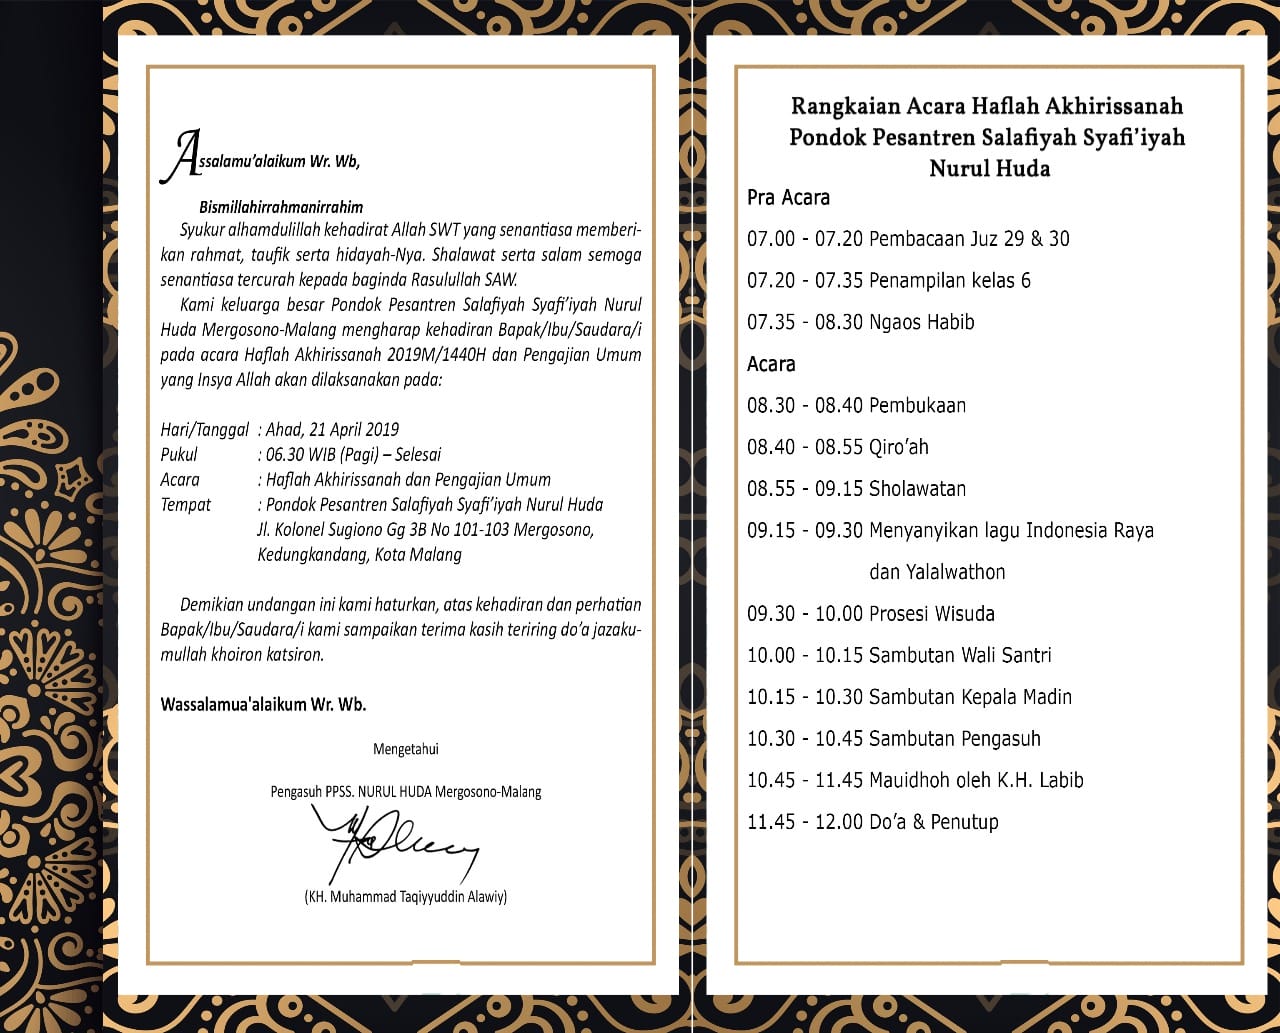 Assalamu'alaikum Wr. Wb,
Bismillahirrahmanirrahim
Syukur alhamdulillah kehadirat Allah SWT yang senantiasa memberi-
kan rahmat, taufik serta hidayah-Nya. Shalawat serta salam semoga
senantiasa tercurah kepada baginda Rasulullah SAW.
Kami keluarga besar Pondok Pesantren Salafiyah Syafi'iyah Nurul
Huda Mergosono-Malang mengharap kehadiran Bapak/Ibu/Saudara/i
pada acara Haflah Akhirissanah 2019M/1440H dan Pengajian Umum
yang Insya Allah akan dilaksanakan pada:
Hari/Tanggal : Ahad, 21 April 2019
Pukul : 06.30 WIB (Pagi) – Selesai
Acara : Haflah Akhirissanah dan Pengajian Umum
Tempat : Pondok Pesantren Salafiyah Syafi'iyah Nurul Huda
Jl. Kolonel Sugiono Gg 3B No 101-103 Mergosono,
Kedungkandang, Kota Malang
Demikian undangan ini kami haturkan, atas kehadiran dan perhatian
Bapak/Ibu/Saudara/i kami sampaikan terima kasih teriring do'a jazaku-
mullah khoiron katsiron.
Wassalamua'alaikum Wr. Wb.
Mengetahui
Pengasuh PPSS. NURUL HUDA Mergosono-Malang
(KH. Muhammad Taqiyyuddin Alawiy)
Rangkaian Acara Haflah Akhirissanah
Pondok Pesantren Salafiyah Syafi'iyah
Nurul Huda
Pra Acara
07.00 - 07.20 Pembacaan Juz 29 & 30
07.20 - 07.35 Penampilan kelas 6
07.35 - 08.30 Ngaos Habib
Acara
08.30 - 08.40 Pembukaan
08.40 - 08.55 Qiro'ah
08.55 - 09.15 Sholawatan
09.15 - 09.30 Menyanyikan lagu Indonesia Raya
dan Yalalwathon
09.30 - 10.00 Prosesi Wisuda
10.00 - 10.15 Sambutan Wali Santri
10.15 - 10.30 Sambutan Kepala Madin
10.30 - 10.45 Sambutan Pengasuh
10.45 - 11.45 Mauidhoh oleh K.H. Labib
11.45 - 12.00 Do'a & Penutup